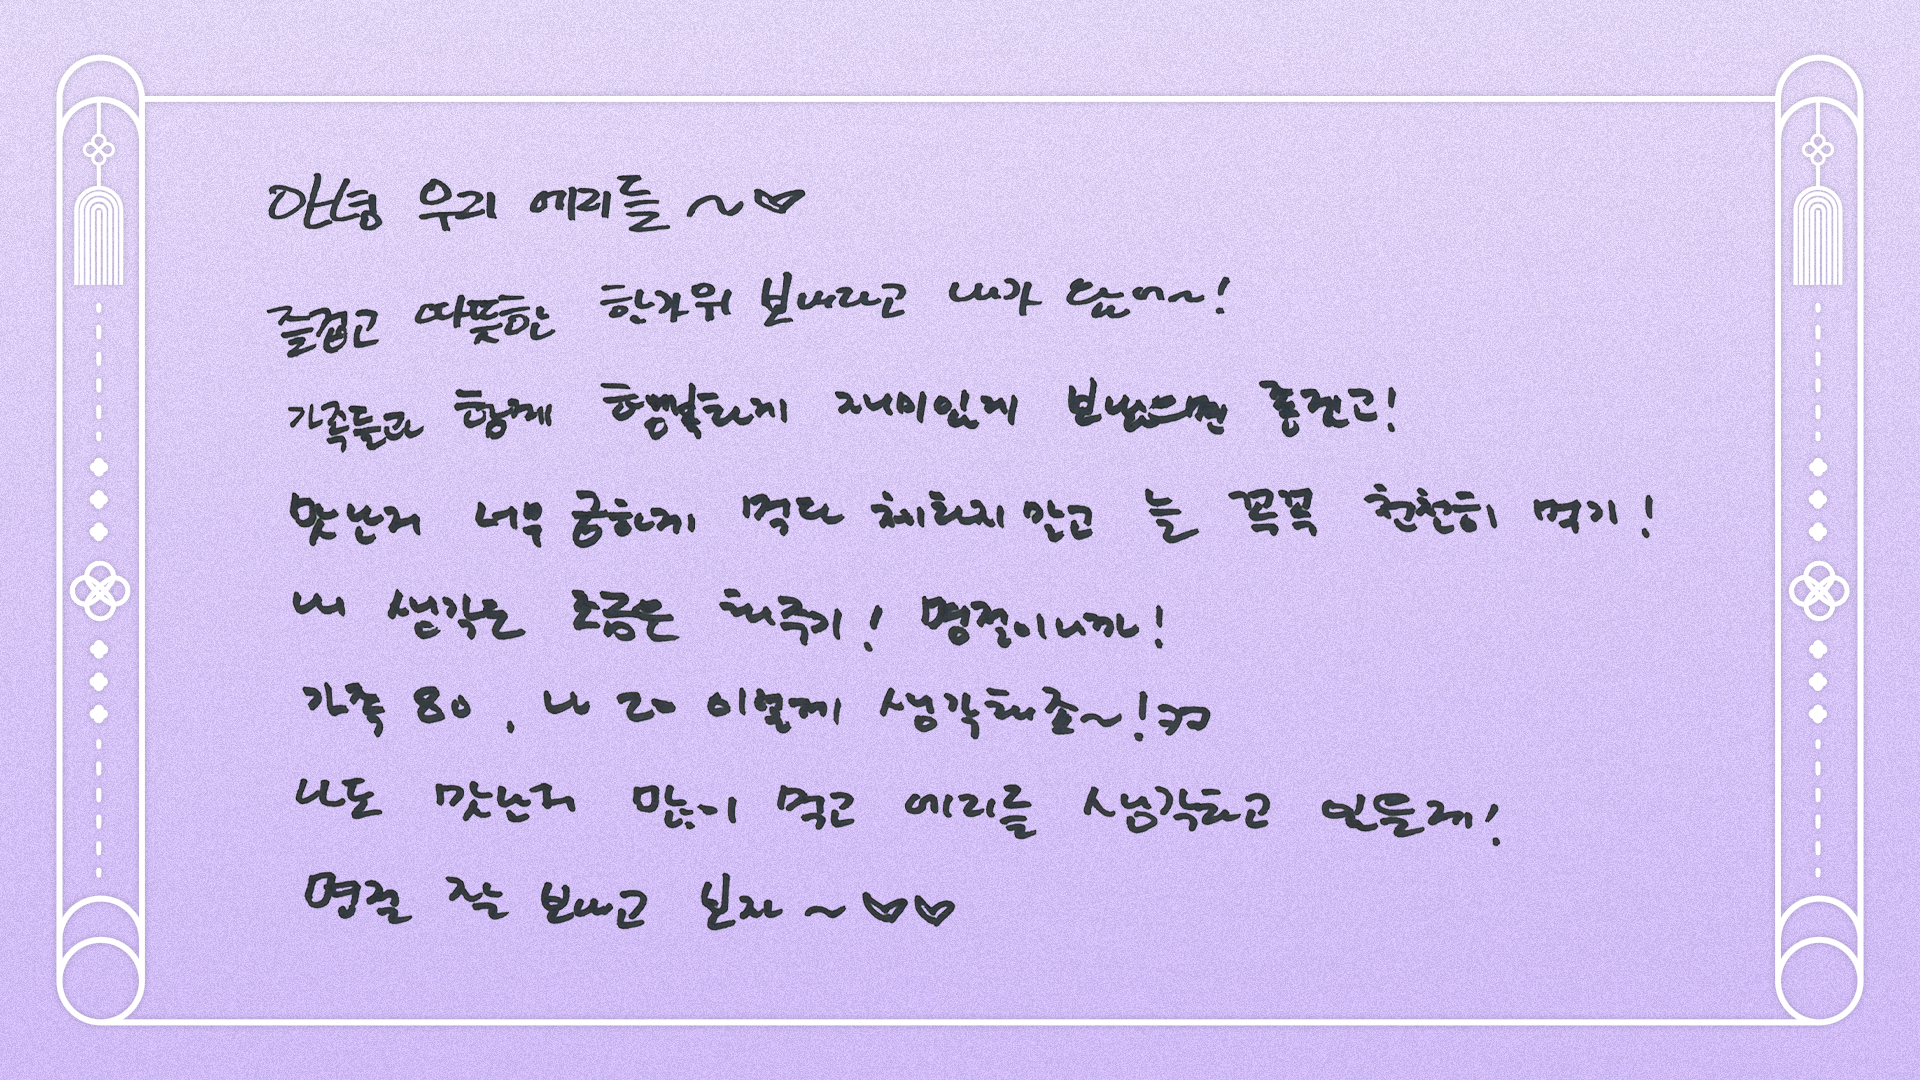 안녕 우리 에리들 ~♡
즐겁고 따뜻한 한가위 보내라고 내가 왔어~!
가족들과 함께 행복하게 재미있게 보냈으면 좋겠고!
맛난거 너무 급하게 먹다 체하지 말고 늘 꼭꼭 천천히 먹기!
내 생각은 조금은 해주기! 명절이니까!
가족 80, 나 20 이렇게 생각해줘~!ㅋㅋ
나도 맛난거 많이 먹고 에리들 생각하고 있을게!
명절 잘 보내고 보자 ~♡♡